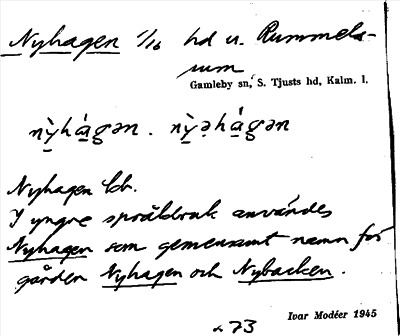 Nyhagen 1/16 hd u. Rummels-
rum
Gamleby sn, S. Tjusts hd, Kalm. l.
nỳhágən . nỳəhágən
Nyhagen ldr.
I yngre språkbruk användes
Nyhagen som gemensamt namn för
gården Nyhagen och Nybacken.
Ivar Modéer 1945
273